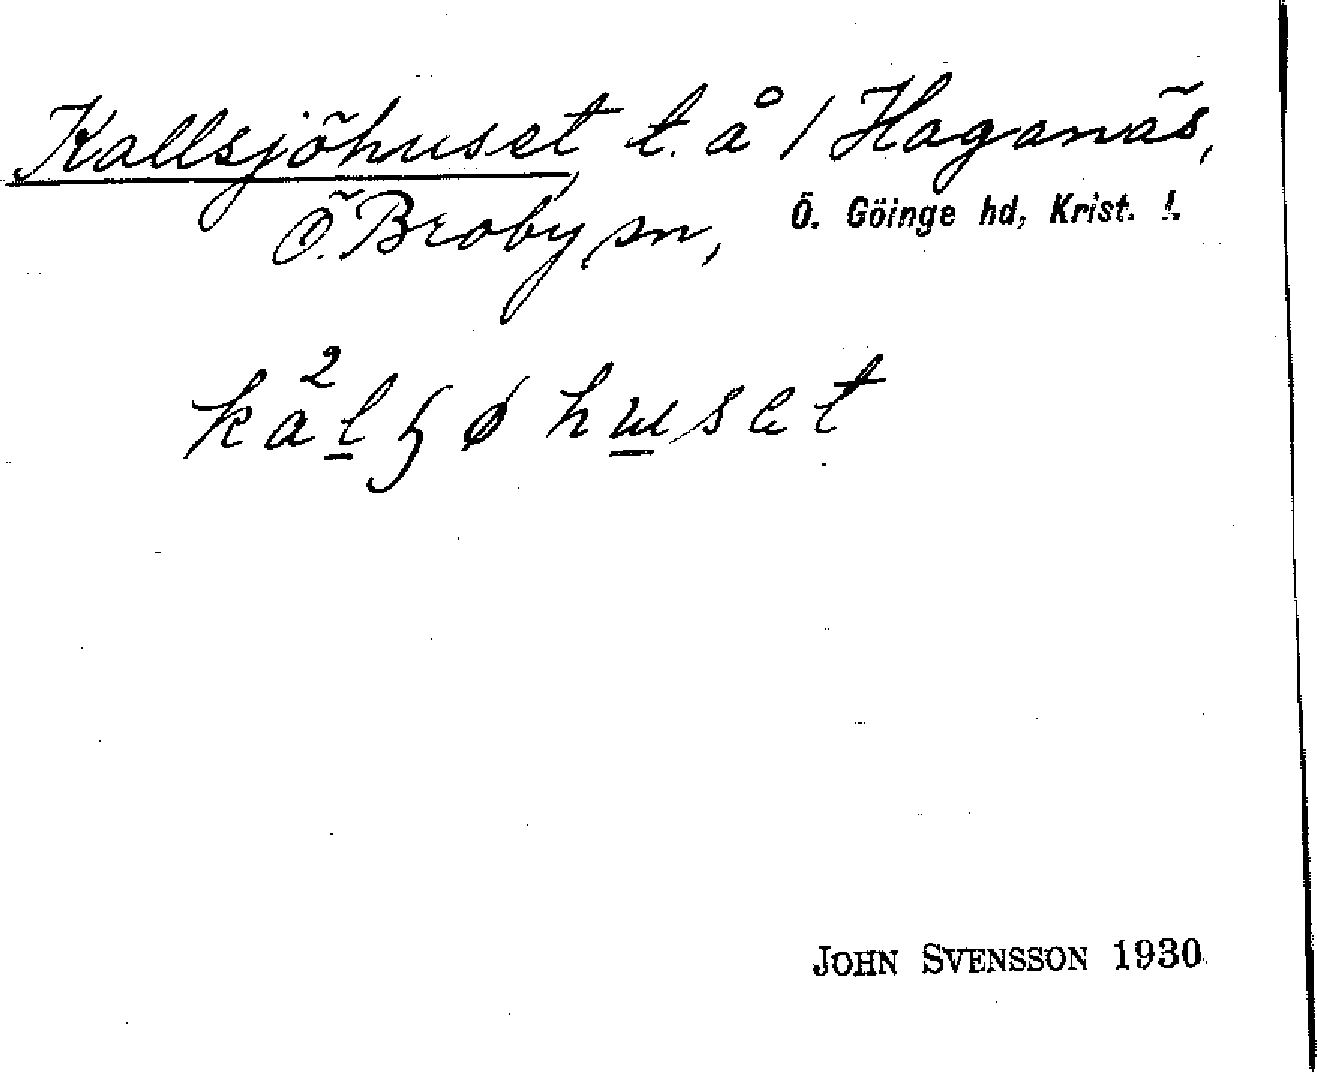 Kallsjöhuset t. å 1 Haganäs,
Ö. Broby sn, Ö. Göinge hd, Krist. l.
JOHN SVENSSON 1930